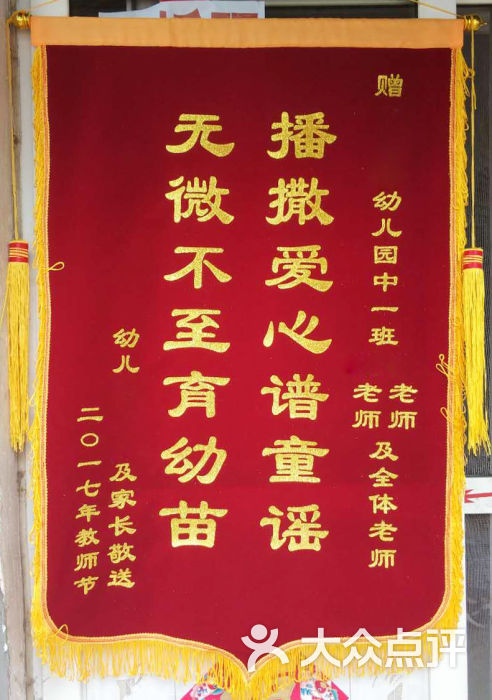 赠
幼儿园中一班
老师
老师
及全体老师
播撒爱心谱童谣
无微不至育幼苗
幼儿
及家长敬送
二〇一七年教师节
大众点评